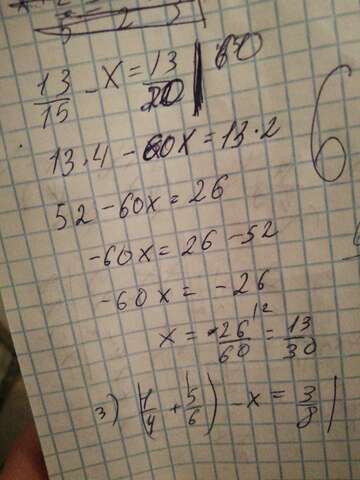 13/15 - x = 13/20 | 60
13·4 - 60x = 13·2
52 - 60x = 26
-60x = 26 - 52
-60x = -26
x = 26/60 |2 = 13/30
3) (1/4 + 5/6) - x = 3/8 |